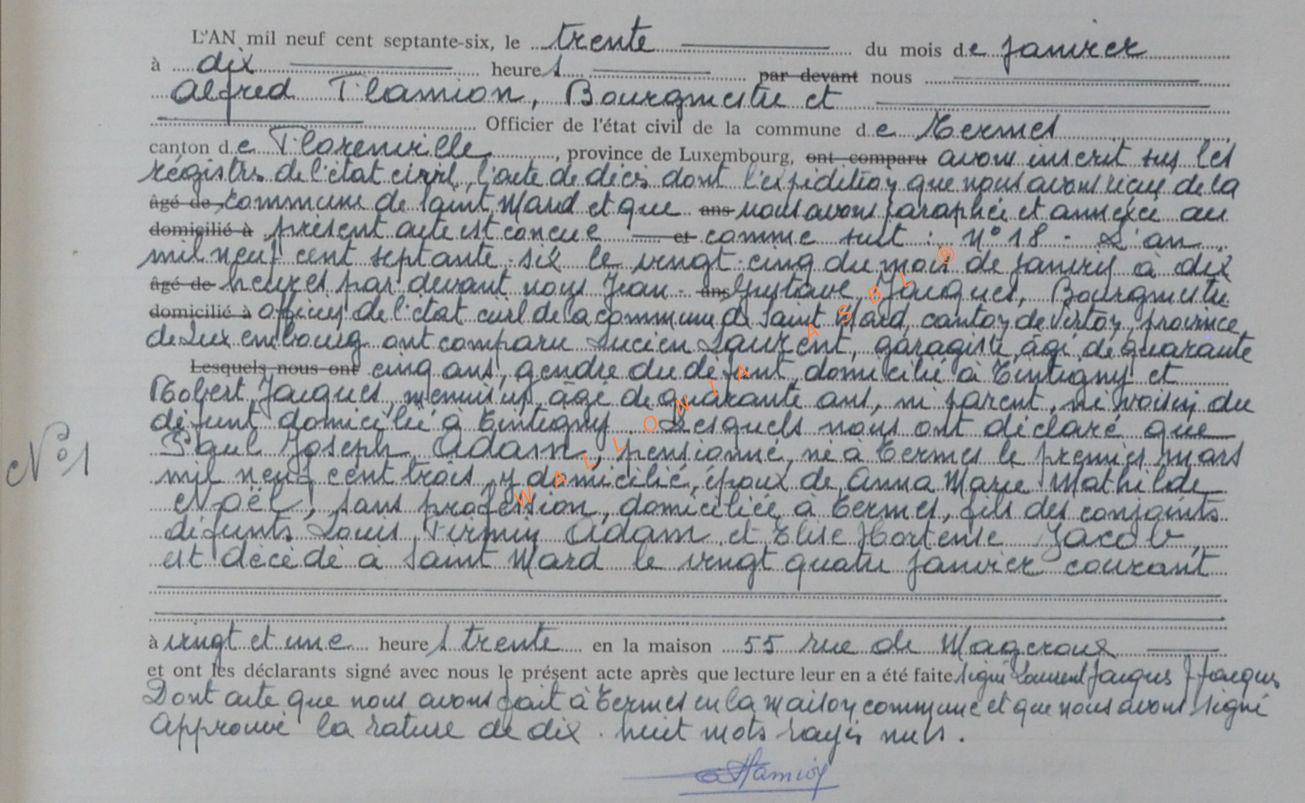 L'AN mil neuf cent septante-six, le trente du mois de janvier
à dix heures par devant nous
Alfred Flamion, Bourgmestre et
Officier de l'état civil de la commune de Termes
canton de Florenville, province de Luxembourg, ont comparu avons inscrit sur les
régistres de l'état civil, l'acte de décès dont l'expédition que nous avons reçue de la
âgé de commune de Saint Mard et que ans nous avons paraphée et annexée au
domicilié à présent acte est concue et comme suit : N° 18 - L'an
mil neuf cent septante-six le vingt-cinq du mois de janvier à dix
âgé de heures par devant nous Jean- ans Gustave, Jacques, Bourgmestre
domicilié à officier de l'état civil de la commune de Saint Mard, canton de Virton, province
de Luxembourg ont comparu Lucien Laurent, garagiste, âgé de quarante
Lesquels nous ont cinq ans, gendre du défunt, domicilié à Tintigny et
Robert Jacques, menuisier, âgé de quarante ans, ni parent, ni voisin du
défunt domicilié à Tintigny Lesquels nous ont déclaré que
N° 1
Paul Joseph Adam, pensionné, né à Termes le premier mars
mil neuf cent trois, y domicilié, époux de Anna Marie Mathilde
Noël, sans profession, domiciliée à Termes, fils des conjoints
défunts Louis Firmin Adam et Elise Hortense Jacob,
est décédé à Saint Mard le vingt quatre janvier courant
à vingt et une heures trente en la maison 55 rue de Mageroux
et ont les déclarants signé avec nous le présent acte après que lecture leur en a été faite signé Laurent Jacques J Jacques
Dont acte que nous avons fait à Termes en la maison commune et que nous avons signé
Approuvé la rature de dix-huit mots rayés nuls.
Flamion
WALLONIA ASBL ®